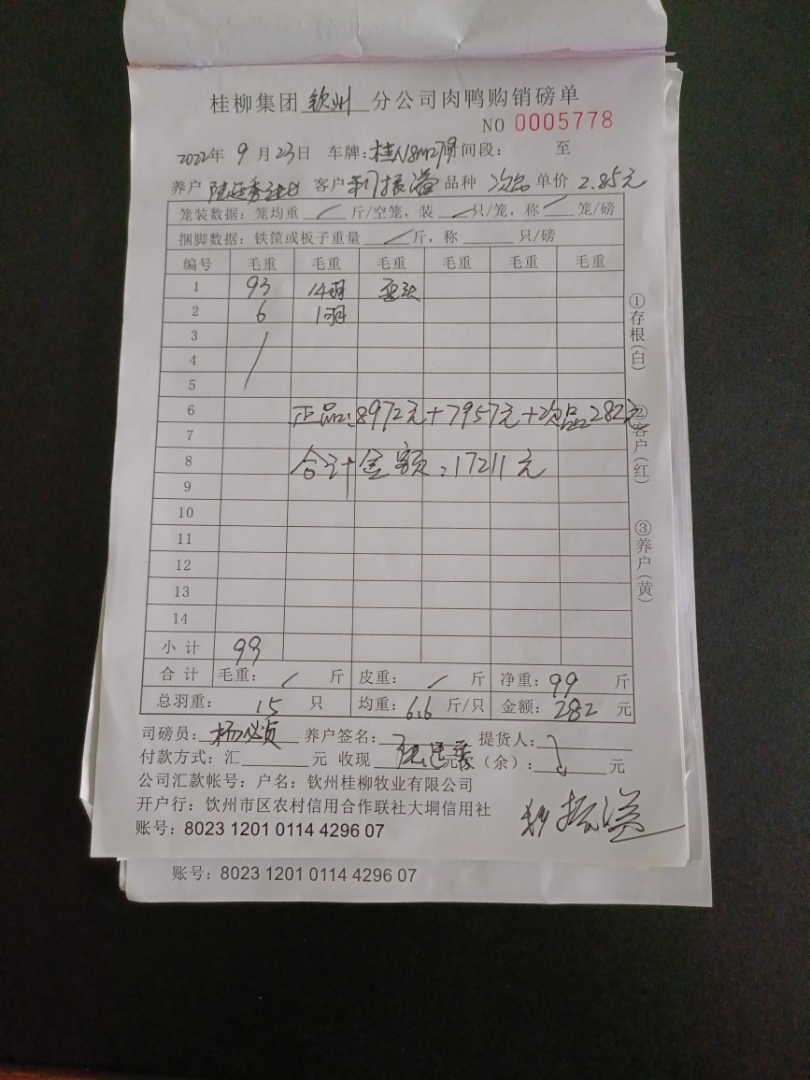 桂柳集团 钦州 分公司肉鸭购销磅单
NO 0005778
2022年 9 月 23日 车牌: 时间段: 至
养户 客户 振溢 品种 次品 单价 2.85元
笼装数据: 笼均重 / 斤/空笼, 装 / 只/笼, 称 / 笼/磅
捆脚数据: 铁筐或板子重量 / 斤, 称 只/磅
编号 毛重 毛重 毛重 毛重 毛重 毛重
1 93 14羽
2 6 1羽
3 /
4
5
6 正品:8972元+7957元+次品282元
7
8 合计金额:17211元
9
10
11
12
13
14
小 计 99
合 计 毛重: / 斤 皮重: / 斤 净重: 99 斤
总羽重: 15 只 均重: 6.6 斤/只 金额: 282 元
司磅员: 养户签名: 提货人:
付款方式: 汇 元 收现 元 (余): 元
公司汇款帐号: 户名: 钦州桂柳牧业有限公司
开户行: 钦州市区农村信用合作联社大垌信用社
账号: 8023 1201 0114 4296 07
振溢
①存根(白)
②客户(红)
③养户(黄)
账号: 8023 1201 0114 4296 07